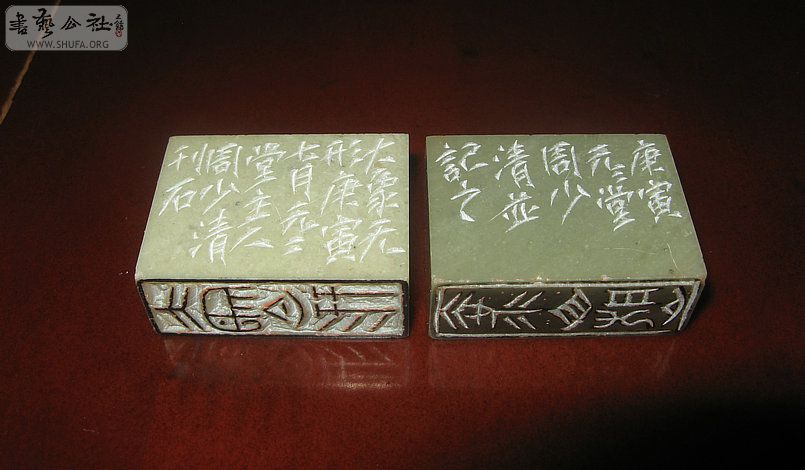 書藝公社
WWW.SHUFA.ORG
大象无
形庚寅
七月元三
堂主人
周少清
刊石
庚寅
元三堂
周少
清並
記之